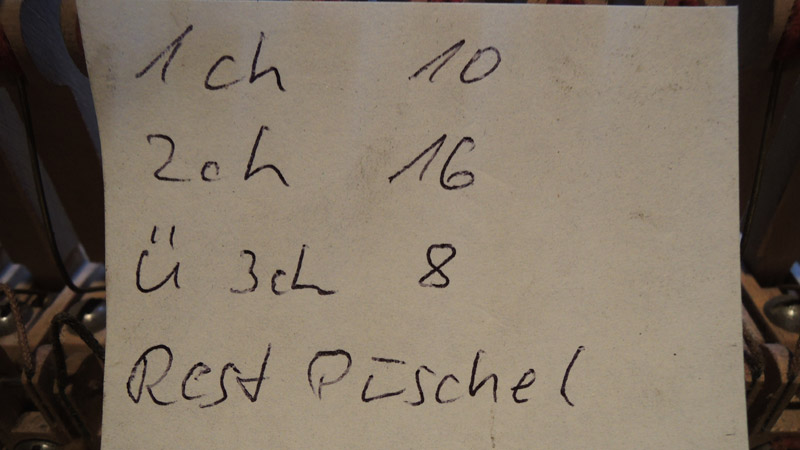 1ch 10
2ch 16
ü 3ch 8
Rest Püschel